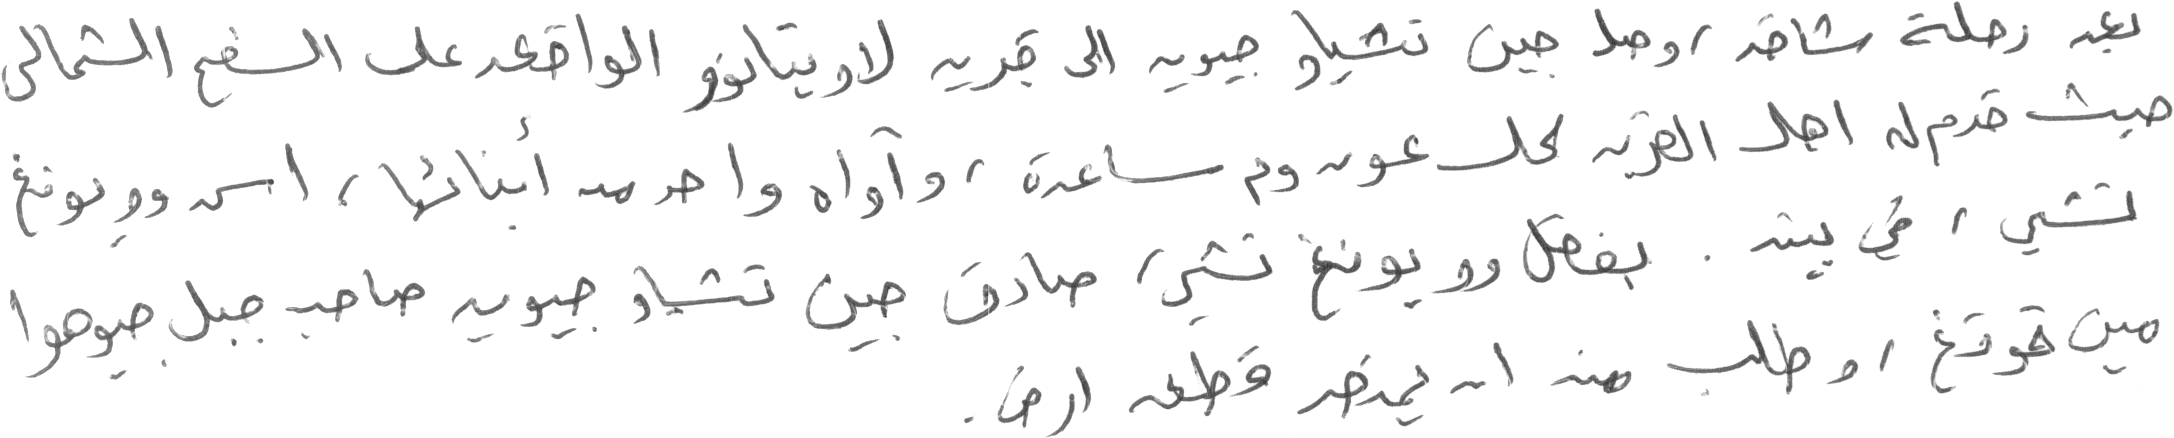 بعد رحلة شاقة، وصل جين تشياو جيويه الى قرية لاويتانوو الواقعة على السفح الشمالي
حيث قدم له اهل القرية كل عون ومساعدة، وآواه واحد من أبنائها، اسمه وو يونغ
تشي، في بيته. بفضل وو يونغ تشي، صادق جين تشياو جيويه صاحب جبل جيوهوا
مين قونغ، وطلب منه ان يمنحه قطعة ارض.